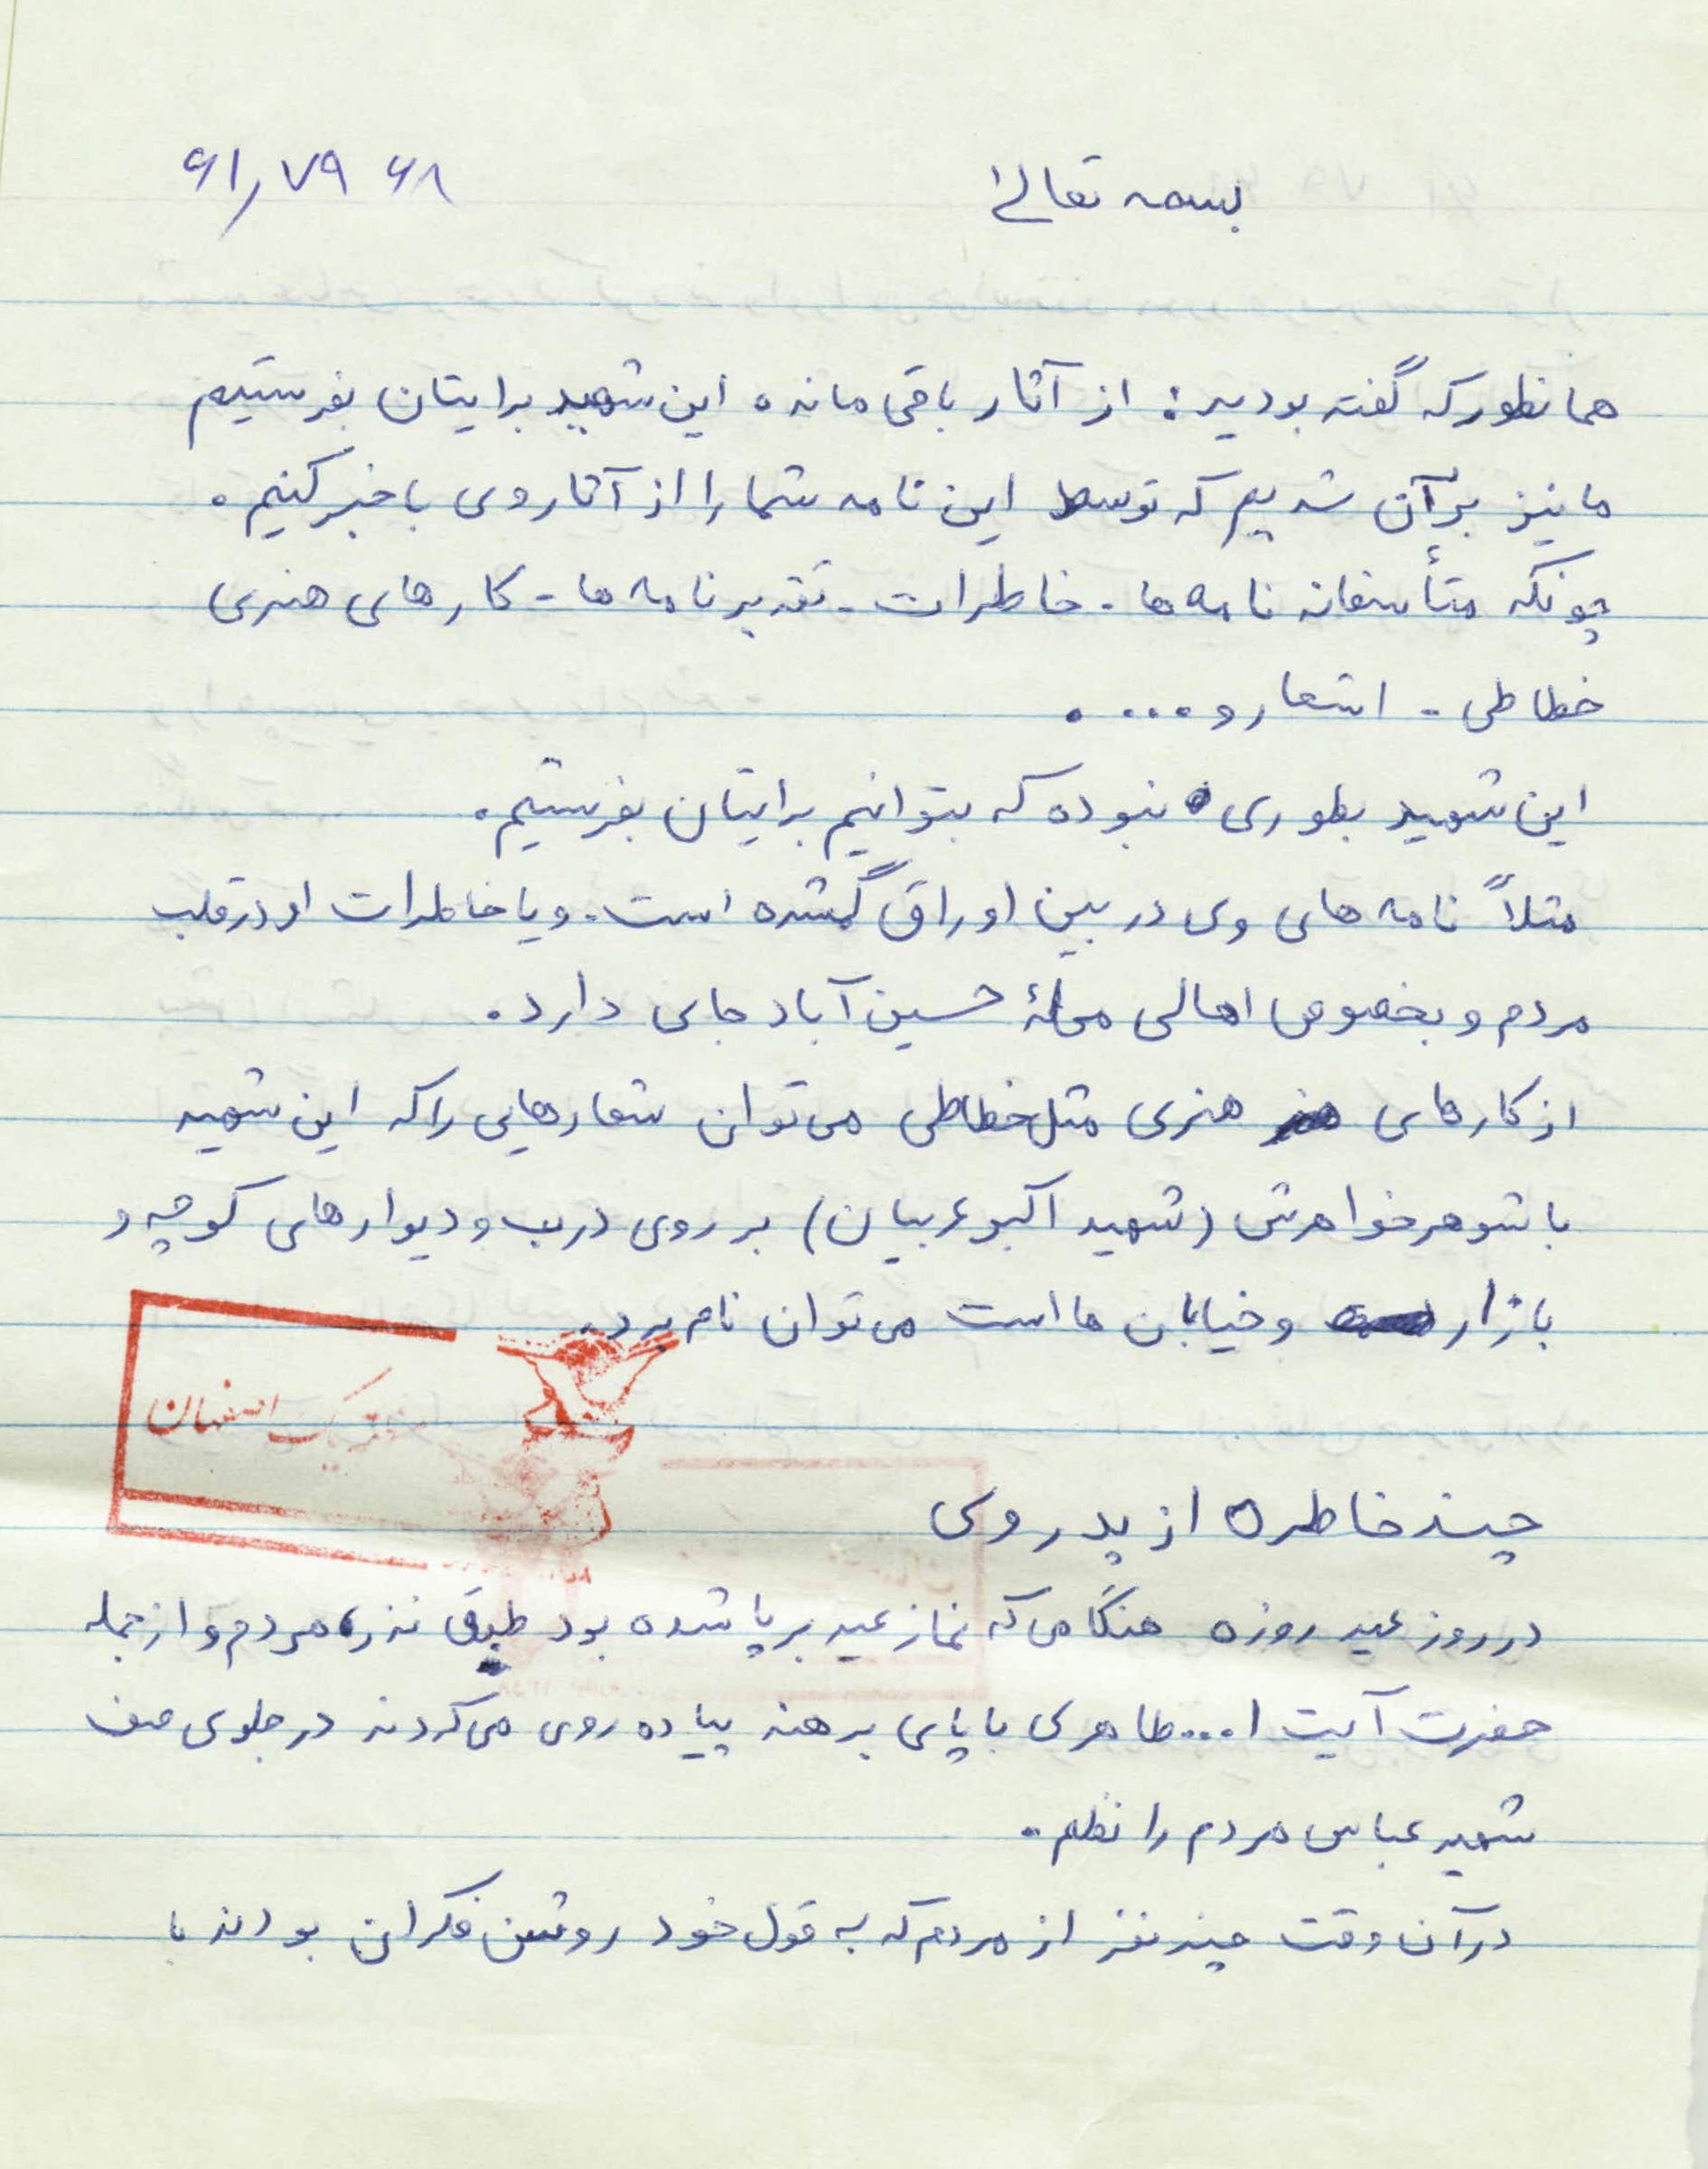 بسمه تعالی
۶۱٫۷۹ ۶۸
همانطور که گفته بودید: از آثار باقی مانده این شهید برایتان بفرستیم
ما نیز برآن شدیم که توسط این نامه شما را از آثار وی باخبر کنیم.
چونکه متأسفانه نامه ها - خاطرات - تقدیرنامه ها - کارهای هنری
خطاطی - اشعار و ....
این شهید بطوری نبوده که بتوانیم برایتان بفرستیم.
مثلاً نامه های وی در بین اوراق گمشده است. و یا خاطرات او در قلب
مردم و بخصوص اهالی محلهٔ حسین آباد جای دارد.
از کارهای هنری مثل خطاطی می توان شعارهایی را که این شهید
با شوهرخواهرش (شهید اکبر عربیان) بر روی درب و دیوارهای کوچه و
بازار و خیابان ها است می توان نام برد.
اصفهان
چند خاطره از پدر وی
در روز عید روزه هنگامی که نماز عید برپا شده بود طبق نذر، مردم و از جمله
حضرت آیت ا... طاهری با پای برهنه پیاده روی می کردند در جلوی صف
شهید عباس مردم را نظم.
در آن وقت چند نفر از مردم که به قول خود روشن فکران بودند با